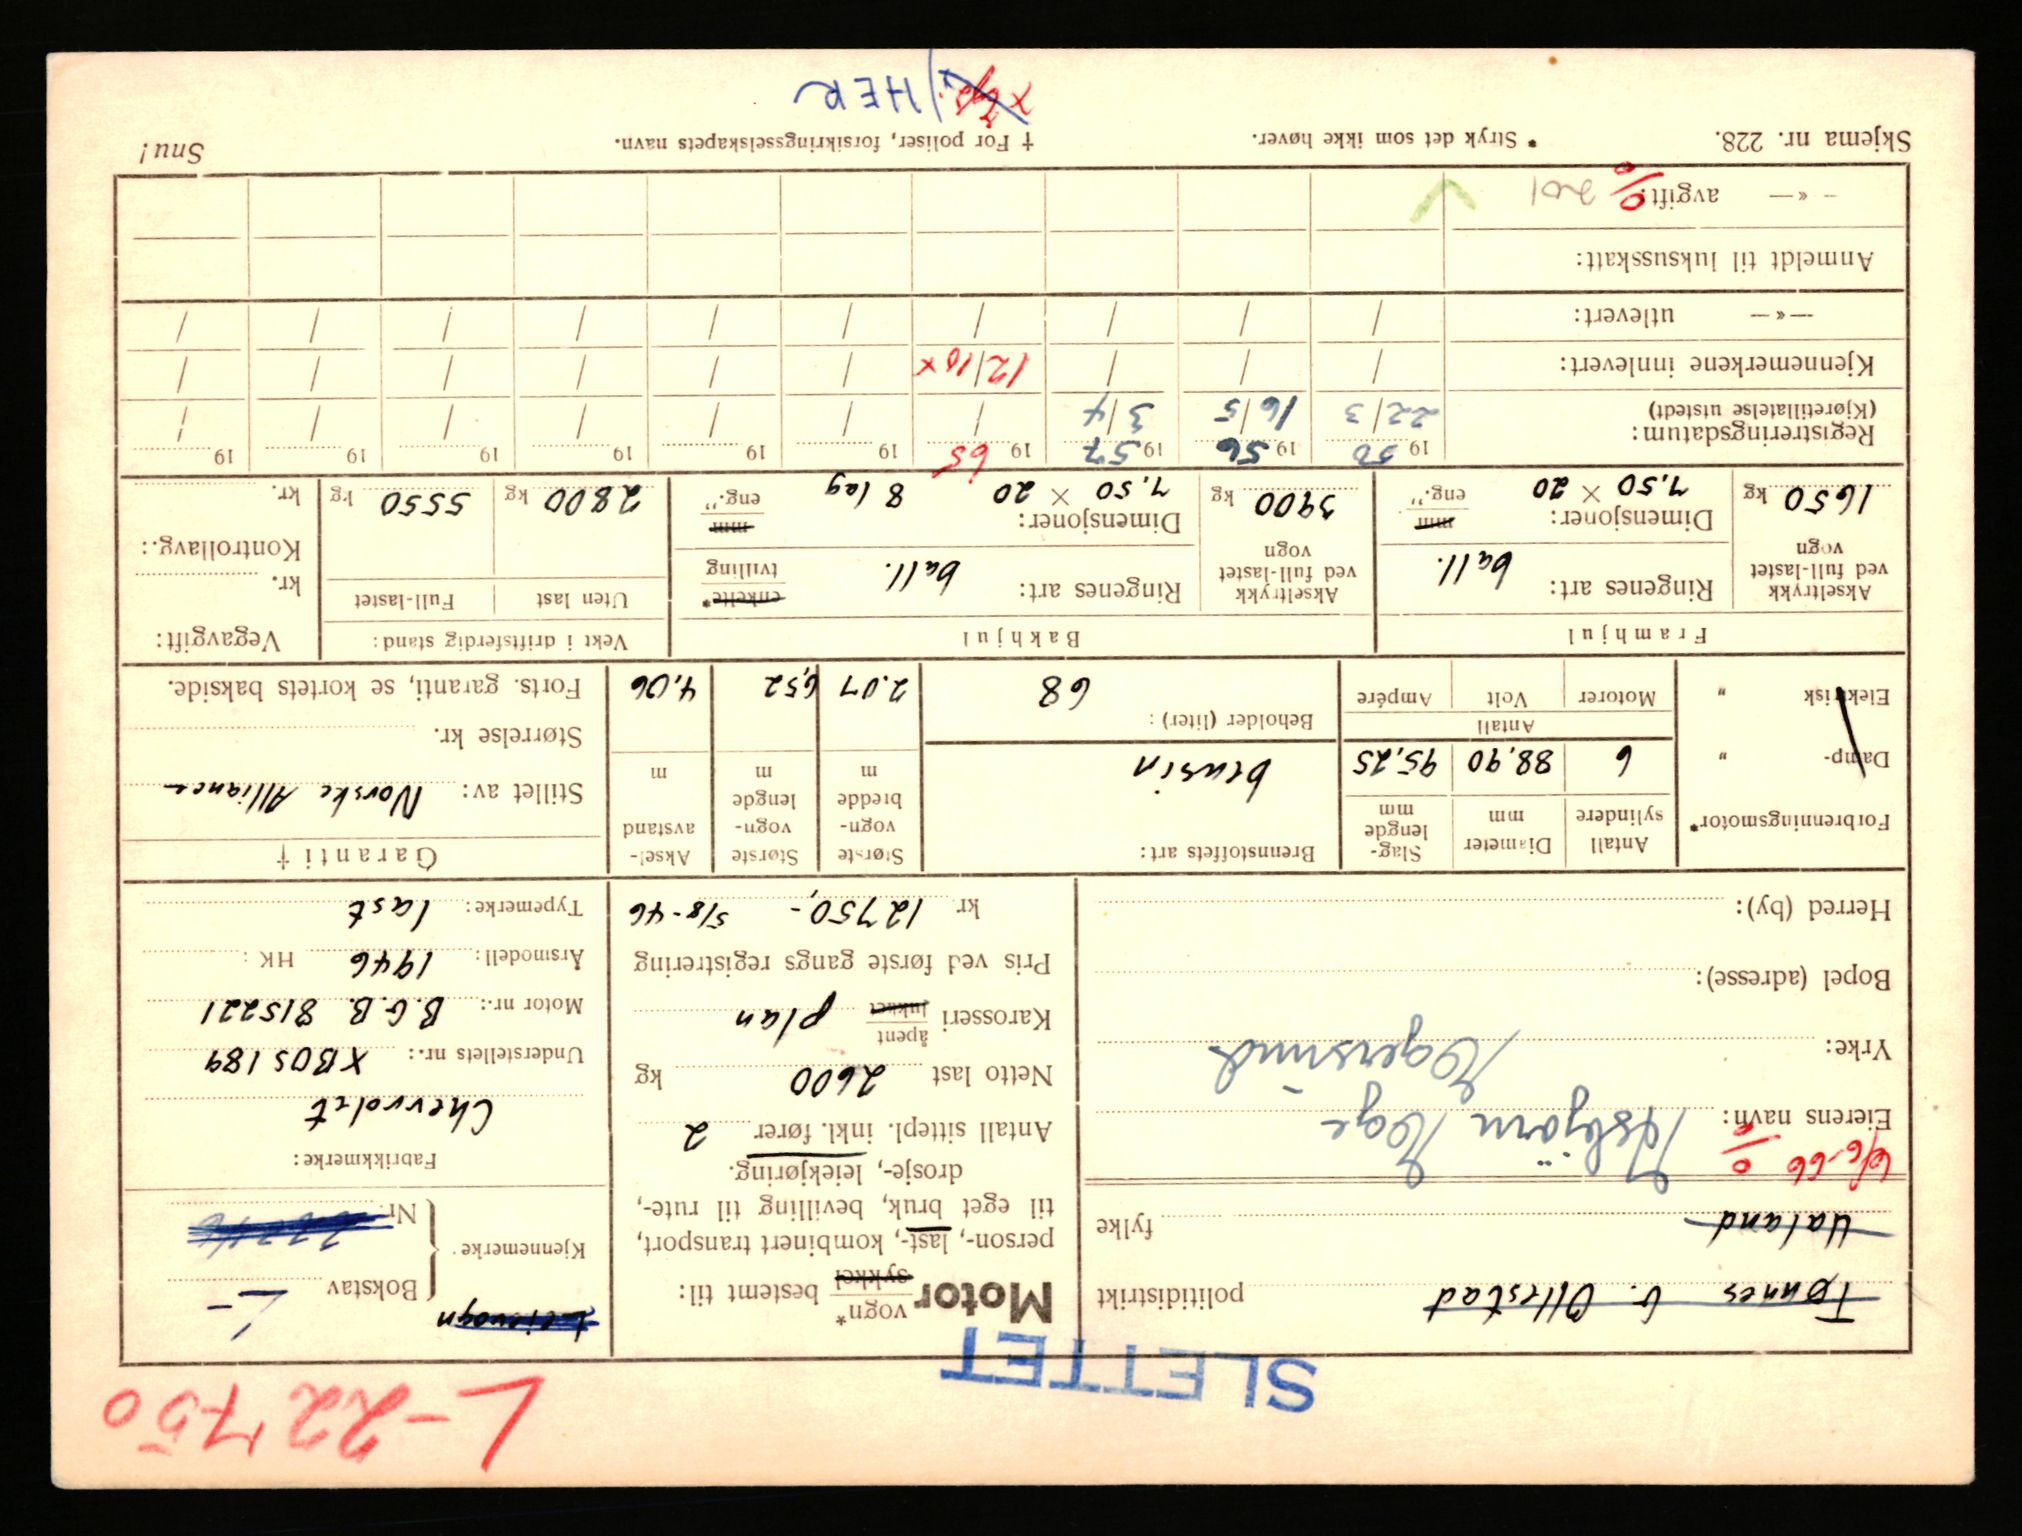 L-22750
SLETTET
Tønnes G. Ollestad politidistrikt
Ualand fylke
6/6-66
Eierens navn: Asbjörn Hoge
Yrke: Egersund
Bopel (adresse):
Herred (by):
Motor vogn* sykkel bestemt til:
person-, last-, kombinert transport,
til eget bruk, bevilling til rute-,
drosje-, leiekjøring.
Antall sittepl. inkl. fører 2
Netto last 2600 kg
Karosseri åpent lukket plan
Pris ved første gangs registrering
kr 12750,- 5/8-46
Leievogn
Kjennemerke Bokstav L-
Nr.
Fabrikkmerke:
Chevrolet
Understellets nr.: XBOS 189
Motor nr.: B.G.B. 815221
Årsmodell: 1946 HK:
Typemerke: last
Forbrenningsmotor*
Damp- „
Elektrisk „
Antall sylindere
Diameter mm
Slag-lengde mm
6 88,90 95,25
Antall
Motorer Volt Ampére
Brennstoffets art:
bensin
Beholder (liter):
68
Største vogn-bredde m
Største vogn-lengde m
Aksel-avstand m
2.07 6,52 4,06
Garanti †
Stillet av: Norske Alliance
Størrelse kr.
Forts. garanti, se kortets bakside.
Framhjul
Akseltrykk ved full-lastet vogn
1650 kg
Ringenes art: ball.
Dimensjoner: mm
7.50 × 20 eng.”
Bakhjul
Akseltrykk ved full-lastet vogn
3900 kg
Ringenes art: ball. enkelte* tvilling
Dimensjoner: mm
7.50 × 20 8 lag eng.”
Vekt i driftsferdig stand:
Uten last Full-lastet
2800 kg 5550 kg
Vegavgift:
kr.
Kontrollavg.:
kr.
19 50 19 56 19 57 19 65 19 19 19 19 19
Registreringsdatum: 22/3 16/5 3/4 / / / / / /
(Kjøretillatelse utstedt)
Kjennemerkene innlevert: / / / 12/10 x / / / / /
—«— utlevert: / / / / / / / / /
Anmeldt til luksusskatt:
—«— avgift: 201
Skjema nr. 228.
* Stryk det som ikke høver.
† For poliser, forsikringsselskapets navn.
Snu!
HER